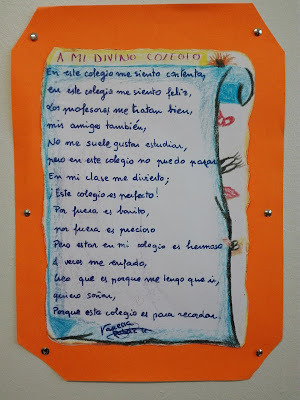 A MI DIVINO COLEGIO
En este colegio me siento contenta,
en este colegio me siento feliz,
los profesores me tratan bien,
mis amigos también,
No me suele gustar estudiar,
pero en este colegio no puedo parar
En mi clase me divierto;
¡Este colegio es perfecto!
Por fuera es bonito,
por fuera es precioso
Pero estar en mi colegio es hermoso
A veces me enfado,
Creo que es porque me tengo que ir,
quiero soñar,
Porque este colegio es para recordar.